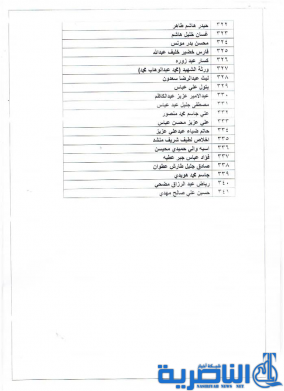 ٣٢٢ حيدر هاشم طاهر
٣٢٣ غسان خليل هاشم
٣٢٤ محسن بدر مونس
٣٢٥ فارس خضير خليف عبدالله
٣٢٦ كسار عبد زوره
٣٢٧ ورثة الشهيد (محمد عبدالوهاب محمد)
٣٢٨ ليث عبدالرضا سعدون
٣٢٩ بتول علي عباس
٣٣٠ عبدالامير عزيز عبدالكاظم
٣٣١ مصطفى جليل عبد عباس
٣٣٢ علي جاسم محمد منصور
٣٣٣ علي عزيز محسن عباس
٣٣٤ حاتم ضياء عبدعلي
٣٣٥ اخلاص لطيف شريف منشد
٣٣٦ والي حميدي محيسن
٣٣٧ فؤاد عباس جبر عطيه
٣٣٨ صادق جليل طارش عطوان
٣٣٩ جاسم محمد هويدي
٣٤٠ رياض عبد الرزاق مضحي
٣٤١ حسين علي صالح مهدي
شبكة اخبار
الناصرية